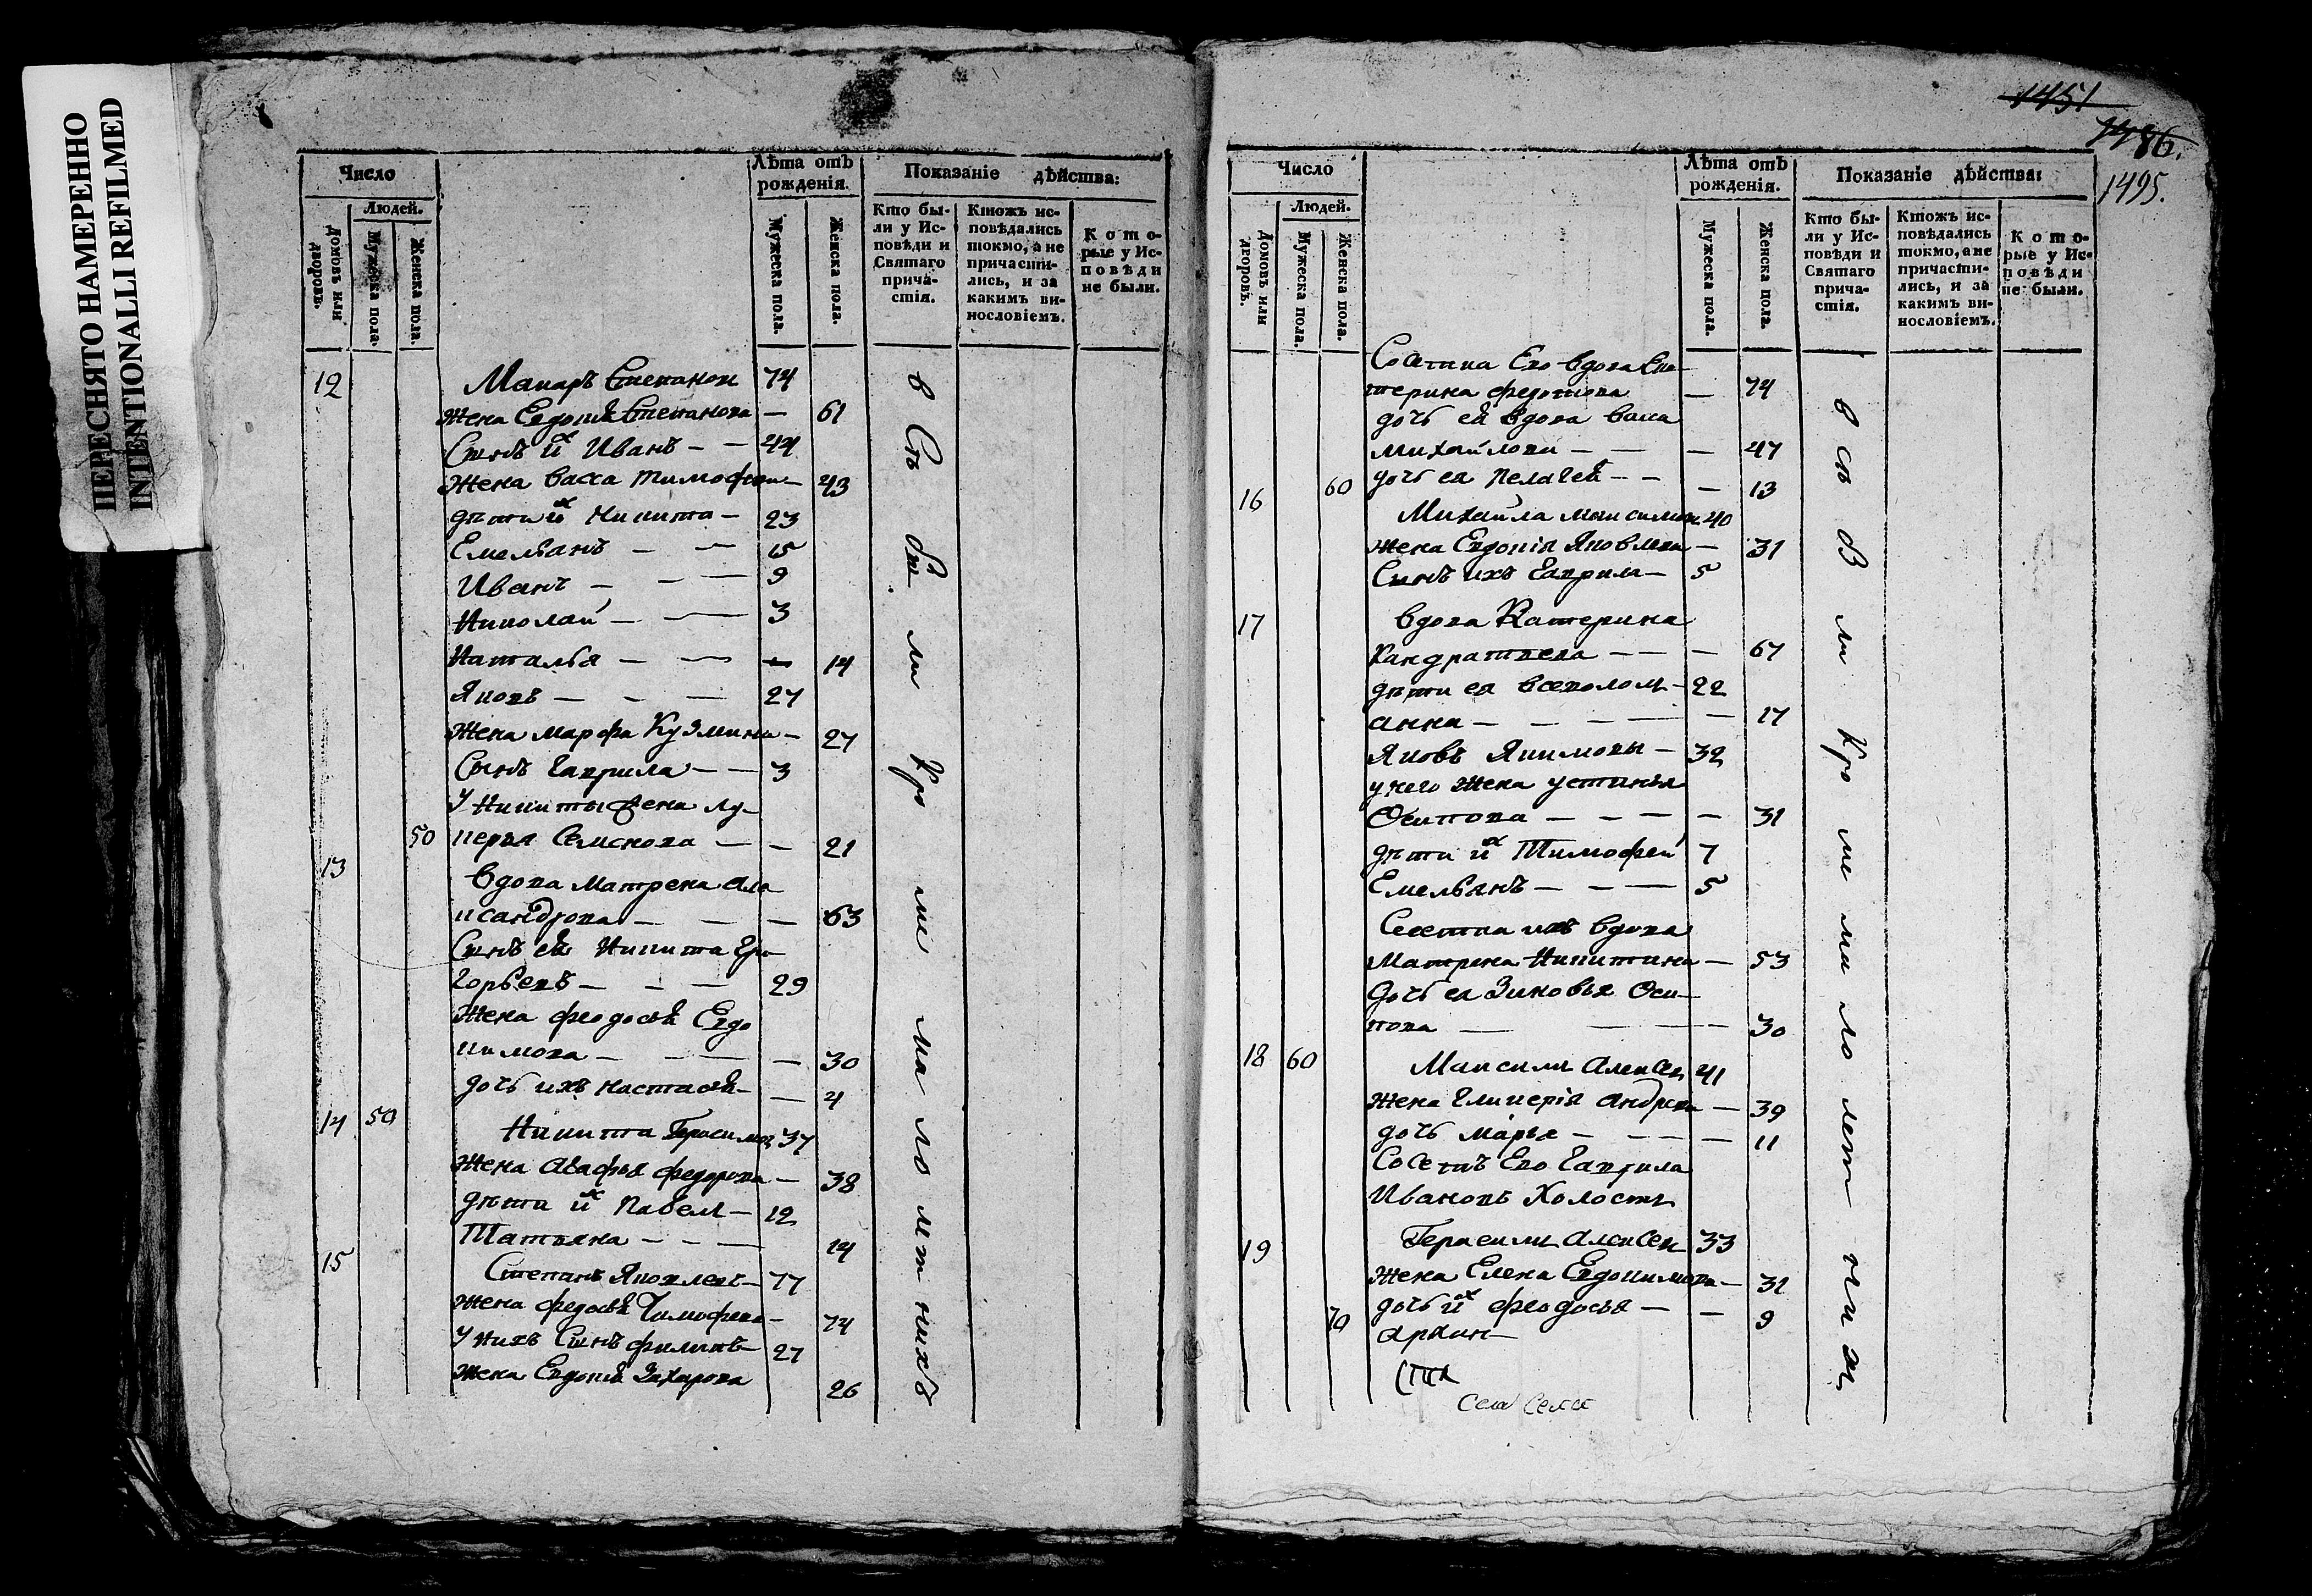 ПЕРЕСНЯТО НАМЕРЕННО
INTENTIONALLI REFILMED
Число
Людей.
Домовъ или дворовъ.
Мужеска пола.
Женска пола.
Лѣта отъ рожденія.
Мужеска пола.
Женска пола.
Показаніе дѣйства:
Кто бы-
ли у Ис-
повѣди и
Святаго
прича-
стія.
Ктожъ ис-
повѣдались
токмо, а не
причасти-
лись, и за
какимъ ви-
нословіемъ.
Кото-
рые у Ис-
повѣди
не были.
12 Макаръ Степанов 74
жена Евдокія Степанова — 61
Сынъ их Иванъ — — 44
жена Васса Тимофеев — 43
дѣти их Никита — 23
Емельянъ — — 15
Иванъ — — — 9
Николай — — 3
Наталья — — — 14
Яковъ — — — 27
жена Марфа Кузмина — 27
Сынъ Гаврила — — 3
У Никиты жена Лу-
50 керья Семенова — — 21
13 вдова Матрена Але
ксандрова — — — 63
Сынъ ея Никита Гри
горьевъ — — — 29
жена Феодосья Евдо
кимова — — — 30
дочь ихъ Настасья — — 4
14 50 Никита Герасимов 37
жена Агафья Федорова — 38
дѣти их Павелъ — 12
Татьяна — — — 14
15 Степанъ Яковлевъ — 77
жена Федосья Тимофеева — 74
У нихъ Сынъ Филипъ — 27
жена Евдокія Захарова 26
всѣ были кроме малолѣтнихъ
1451
1486.
1495.
Число
Людей.
Домовъ или дворовъ.
Мужеска пола.
Женска пола.
Лѣта отъ рожденія.
Мужеска пола.
Женска пола.
Показаніе дѣйства:
Кто бы-
ли у Ис-
повѣди и
Святаго
прича-
стія.
Ктожъ ис-
повѣдались
токмо, а не
причасти-
лись, и за
какимъ ви-
нословіемъ.
Кото-
рые у Ис-
повѣди
не были.
Сестра Его вдова Ека
терина Федотова — 74
дочь ея вдова Васса
Михайлова — — — 47
60 дочь ея Пелагея — — — 13
16 Михайла Максимов 40
жена Евдокія Яковлева — 31
Сынъ ихъ Гаврила — 5
17 вдова Катерина
Кандратьева — — — 67
дѣти ея — 22
Анна — — — — — 17
Яковъ Якимовы — 32
у него жена Устинья
Осипова — — — — 31
дѣти их Тимофей 7
Емельянъ — — — 5
ихъ вдова
Матрена Никитина — 53
дочь ея Зиновья Оси-
пова — — — 30
18 60 Максимъ Алексеев 41
жена Гликерія Андреева — 39
дочь Марья — — — — 11
Его Гаврила
Ивановъ Холостъ
19 Герасимъ Алексеев 33
жена Елена Евдокимова — 31
70 дочь их Феодосья — — 9